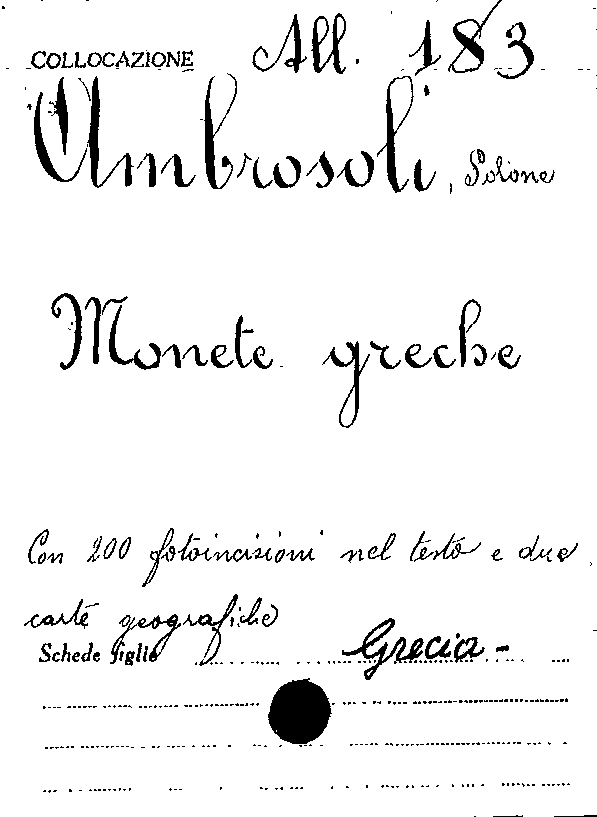 COLLOCAZIONE All. 183
Ambrosoli, Solone
Monete greche
Con 200 fotoincisioni nel testo e due
carte geografiche
Schede figlie Grecia -